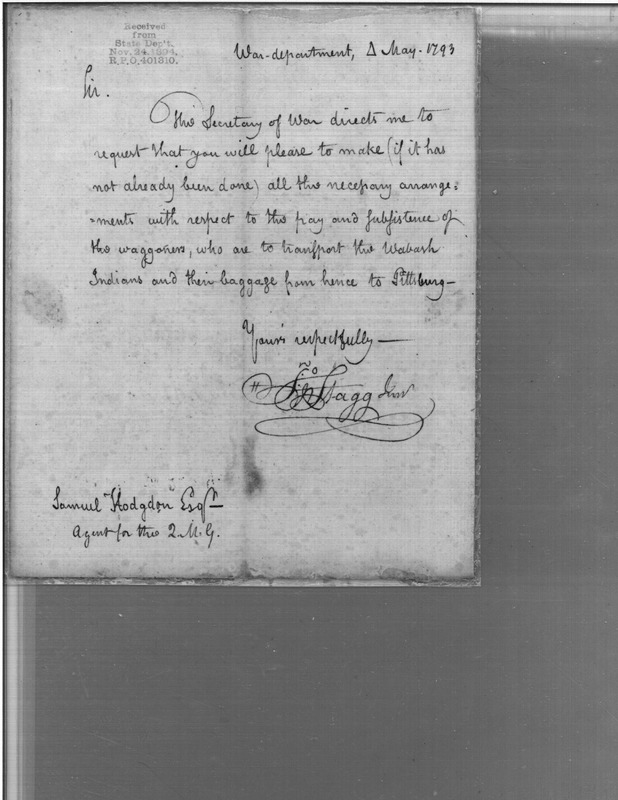 Received
from
State Dep't.
Nov. 24. 1894.
R.P.O. 401310.
War-department, Δ May. 1793
Sir.
The Secretary of War directs me to
request that you will please to make (if it has
not already been done) all the necessary arrange=
=ments with respect to the pay and subsistence of
the waggoners, who are to transport the Wabash
Indians and their baggage from hence to Pittsburg—
Your's respectfully—
Jno Stagg Junr
Samuel Hodgdon Esqr—
Agent for the Q.M.G.